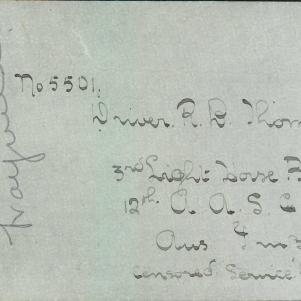 No 5501.
Driver. R. G. Thom
3rd Light Horse B
12th A. A. S. C
Aus
Censored Service